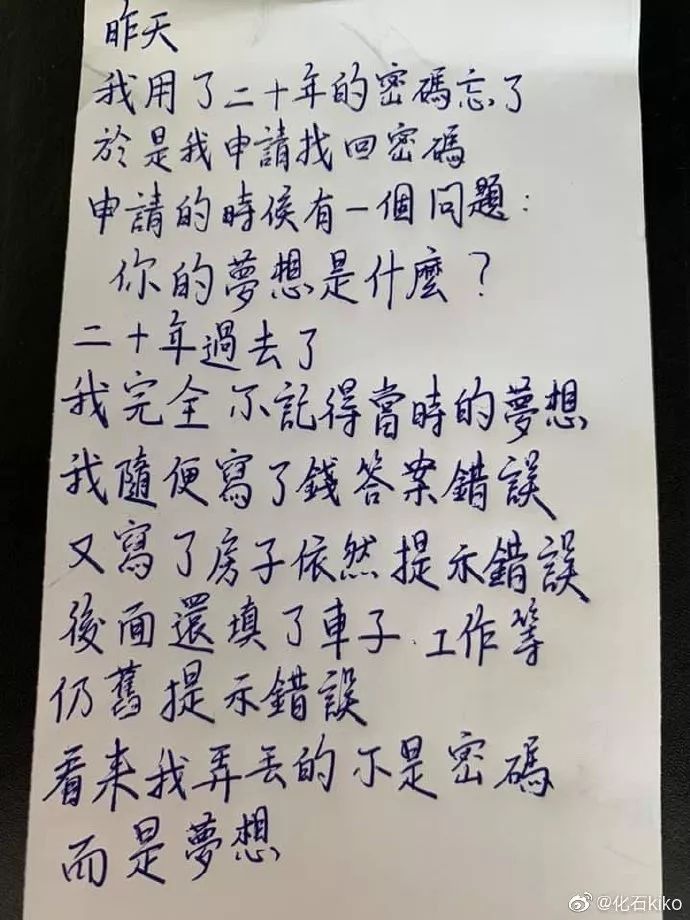 昨天
我用了二十年的密碼忘了
於是我申請找回密碼
申請的時侯有一個問題:
你的夢想是什麼?
二十年過去了
我完全不記得當時的夢想
我隨便寫了錢答案錯誤
又寫了房子依然提示錯誤
後面還填了車子.工作等
仍舊提示錯誤
看来我弄丟的不是密碼
而是夢想
@化石kiko